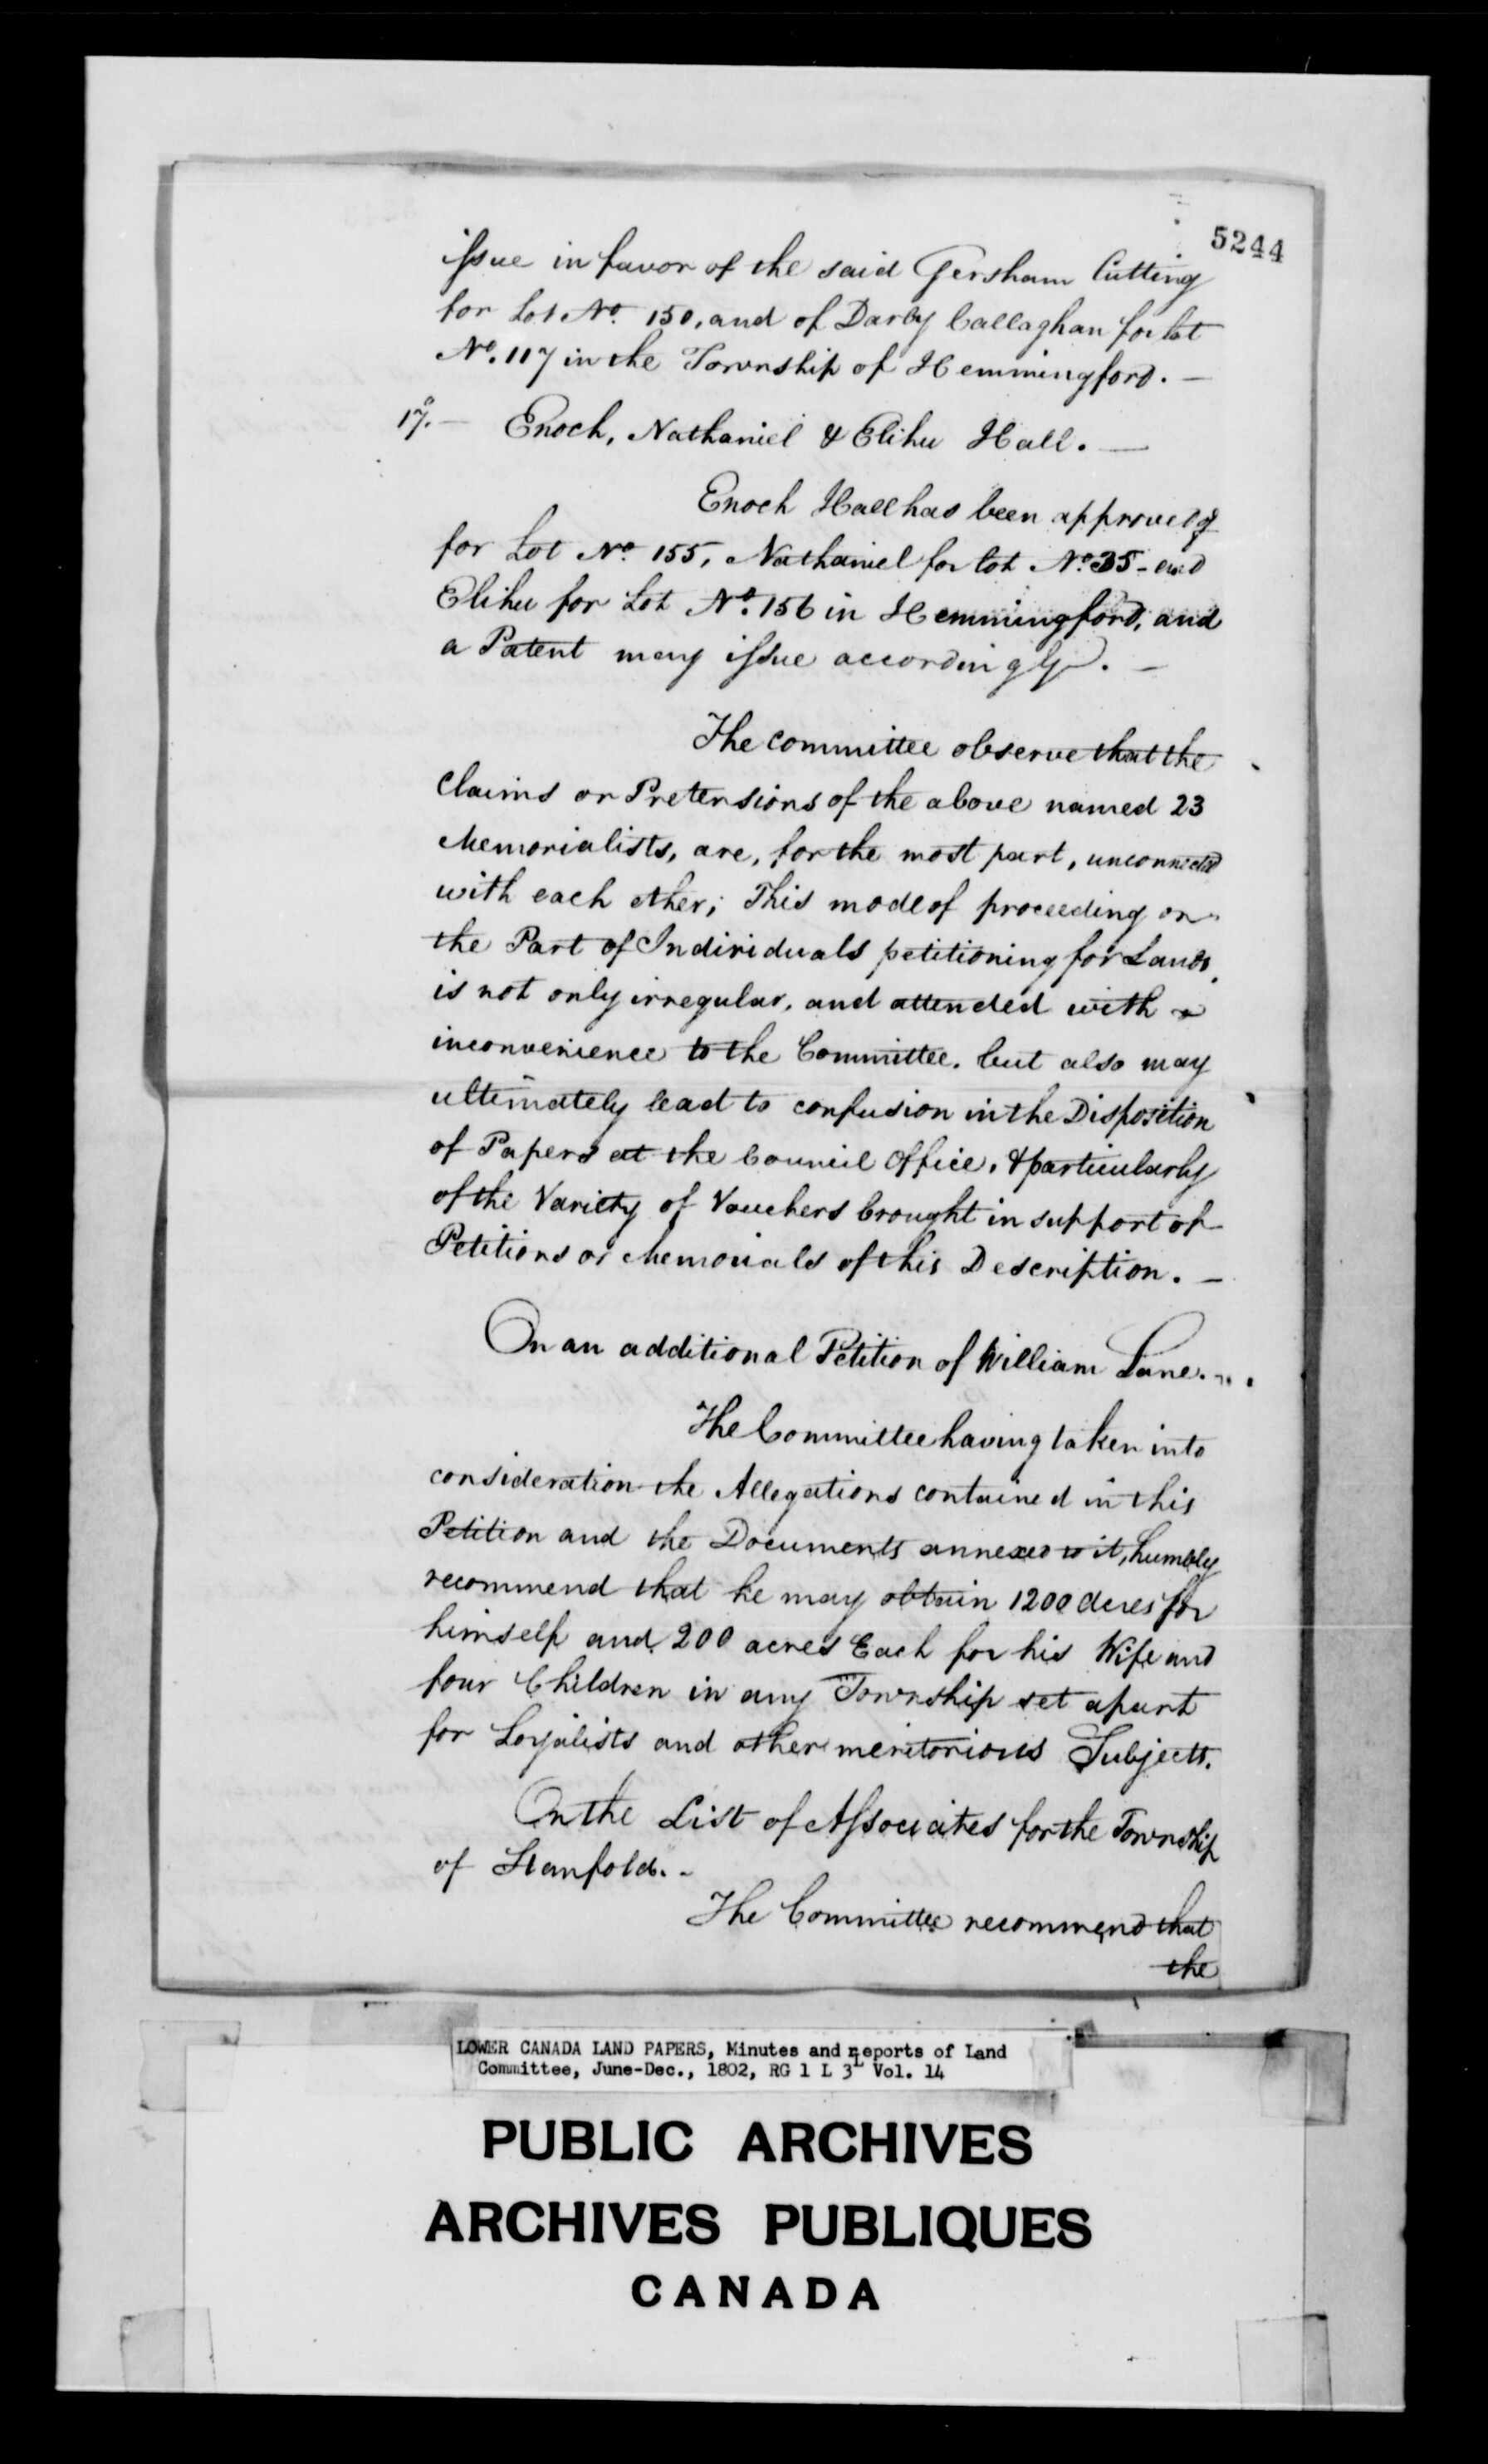 5244
issue in favor of the said Gersham Cutting
for Lot No. 150, and of Darby Callaghan for lot
No. 117 in the Township of Hemmingford. —
17. — Enoch, Nathaniel & Elihu Hall. —
Enoch Hall has been approved of
for Lot No. 155, Nathaniel for lot No. 35 - and
Elihu for Lot No. 156 in Hemmingford, and
a Patent may issue accordingly. —
The committee observe that the
Claims or Pretensions of the above named 23
Memorialists, are, for the most part, unconnected
with each other; This mode of proceeding on
the Part of Individuals petitioning for Lands,
is not only irregular, and attended with
inconvenience to the Committee. but also may
ultimately lead to confusion in the Disposition
of Papers at the Council Office, & particularly
of the Variety of Vouchers brought in support of
Petitions or Memorials of this Description. —
On an additional Petition of William Lane...
The Committee having taken into
consideration the Allegations contained in this
Petition and the Documents annexed to it, humbly
recommend that he may obtain 1200 acres for
himself and 200 acres Each for his Wife and
four Children in any Township set apart
for Loyalists and other meritorious Subjects.
On the List of Associates for the Township
of Stanfold. -
The Committee recommend that
the
LOWER CANADA LAND PAPERS, Minutes and Reports of Land
Committee, June-Dec., 1802, RG 1 L 3L Vol. 14
PUBLIC ARCHIVES
ARCHIVES PUBLIQUES
CANADA